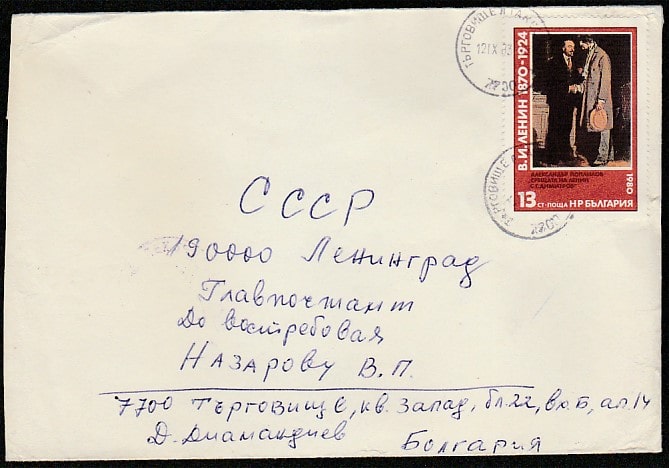 ТЪРГОВИЩЕ
12 IX 83
7700
В.И. ЛЕНИН 1870-1924
АЛЕКСАНДЪР ПОПЛИЛОВ
СРЕЩАТА НА ЛЕНИН
С Г. ДИМИТРОВ
1980
13 СТ·ПОЩА НР БЪЛГАРИЯ
ТЪРГОВИЩЕ
7700
СССР
190000 Ленинград
Главпочтамт
До востребовая
Назарову В.П.
7700 Търговище, кв. Запад, бл.22, вх.Б, ап.14
Д. Диамандиев Болгария